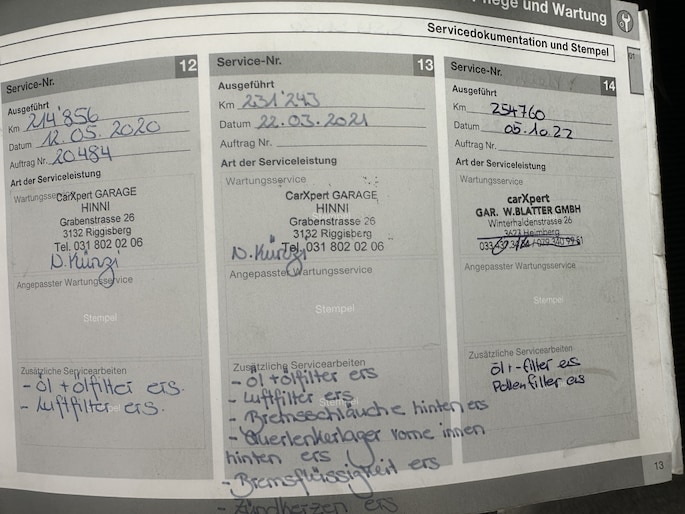 Pflege und Wartung
Servicedokumentation und Stempel
Service-Nr. 12
Ausgeführt
Km 214'856
Datum 12.05.2020
Auftrag Nr. 20484
Art der Serviceleistung
Wartungsservice
CarXpert GARAGE
HINNI
Grabenstrasse 26
3132 Riggisberg
Tel. 031 802 02 06
N. Künzi
Angepasster Wartungsservice
Stempel
Zusätzliche Servicearbeiten
- Öl + Ölfilter ers.
- Luftfilter ers.
Service-Nr. 13
Ausgeführt
Km 231'243
Datum 22.03.2021
Auftrag Nr.
Art der Serviceleistung
Wartungsservice
CarXpert GARAGE
HINNI
Grabenstrasse 26
3132 Riggisberg
Tel. 031 802 02 06
N. Künzi
Angepasster Wartungsservice
Stempel
Zusätzliche Servicearbeiten
- Öl + Ölfilter ers
- Luftfilter ers
- Bremsschläuche hinten ers
- Querlenkerlager vorne innen
hinten ers
- Bremsflüssigkeit ers
- Zündkerzen ers
Service-Nr. 14
Ausgeführt
Km 254760
Datum 05.10.22
Auftrag Nr.
Art der Serviceleistung
Wartungsservice
carXpert
GAR. W.BLATTER GMBH
Winterhaldenstrasse 26
3627 Heimberg
Angepasster Wartungsservice
Stempel
Zusätzliche Servicearbeiten
Öl + -filter ers
Pollenfilter ers
13